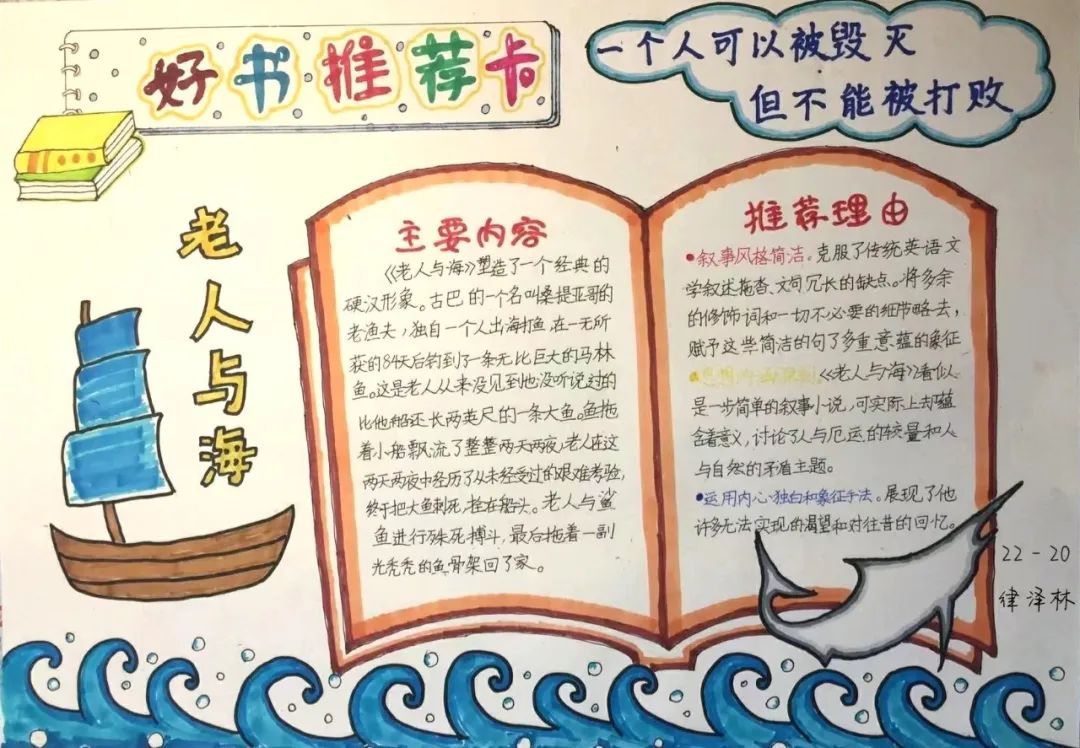 好书推荐卡
一个人可以被毁灭
但不能被打败
老人与海
主要内容
《老人与海》塑造了一个经典的
硬汉形象。古巴的一个名叫桑提亚哥的
老渔夫，独自一个人出海打鱼，在一无所
获的84天后钓到了一条无比巨大的马林
鱼。这是老人从来没见到也没听说过的
比他船还长两英尺的一条大鱼。鱼拖
着小船飘流了整整两天两夜，老人在这
两天两夜中经历了从未经受过的艰难考验，
终于把大鱼刺死，拴在船头。老人与鲨
鱼进行殊死搏斗，最后拖着一副
光秃秃的鱼骨架回了家。
推荐理由
•叙事风格简洁。克服了传统英语文
学叙述拖沓、文句冗长的缺点。将多余
的修饰词和一切不必要的细节略去，
赋予这些简洁的句了多重意蕴的象征
《老人与海》看似
是一步简单的叙事小说，可实际上却蕴
含着意义，讨论了人与厄运的较量和人
与自然的矛盾主题。
•运用内心独白和象征手法。展现了他
许多无法实现的渴望和对往昔的回忆。
22-20
律泽林